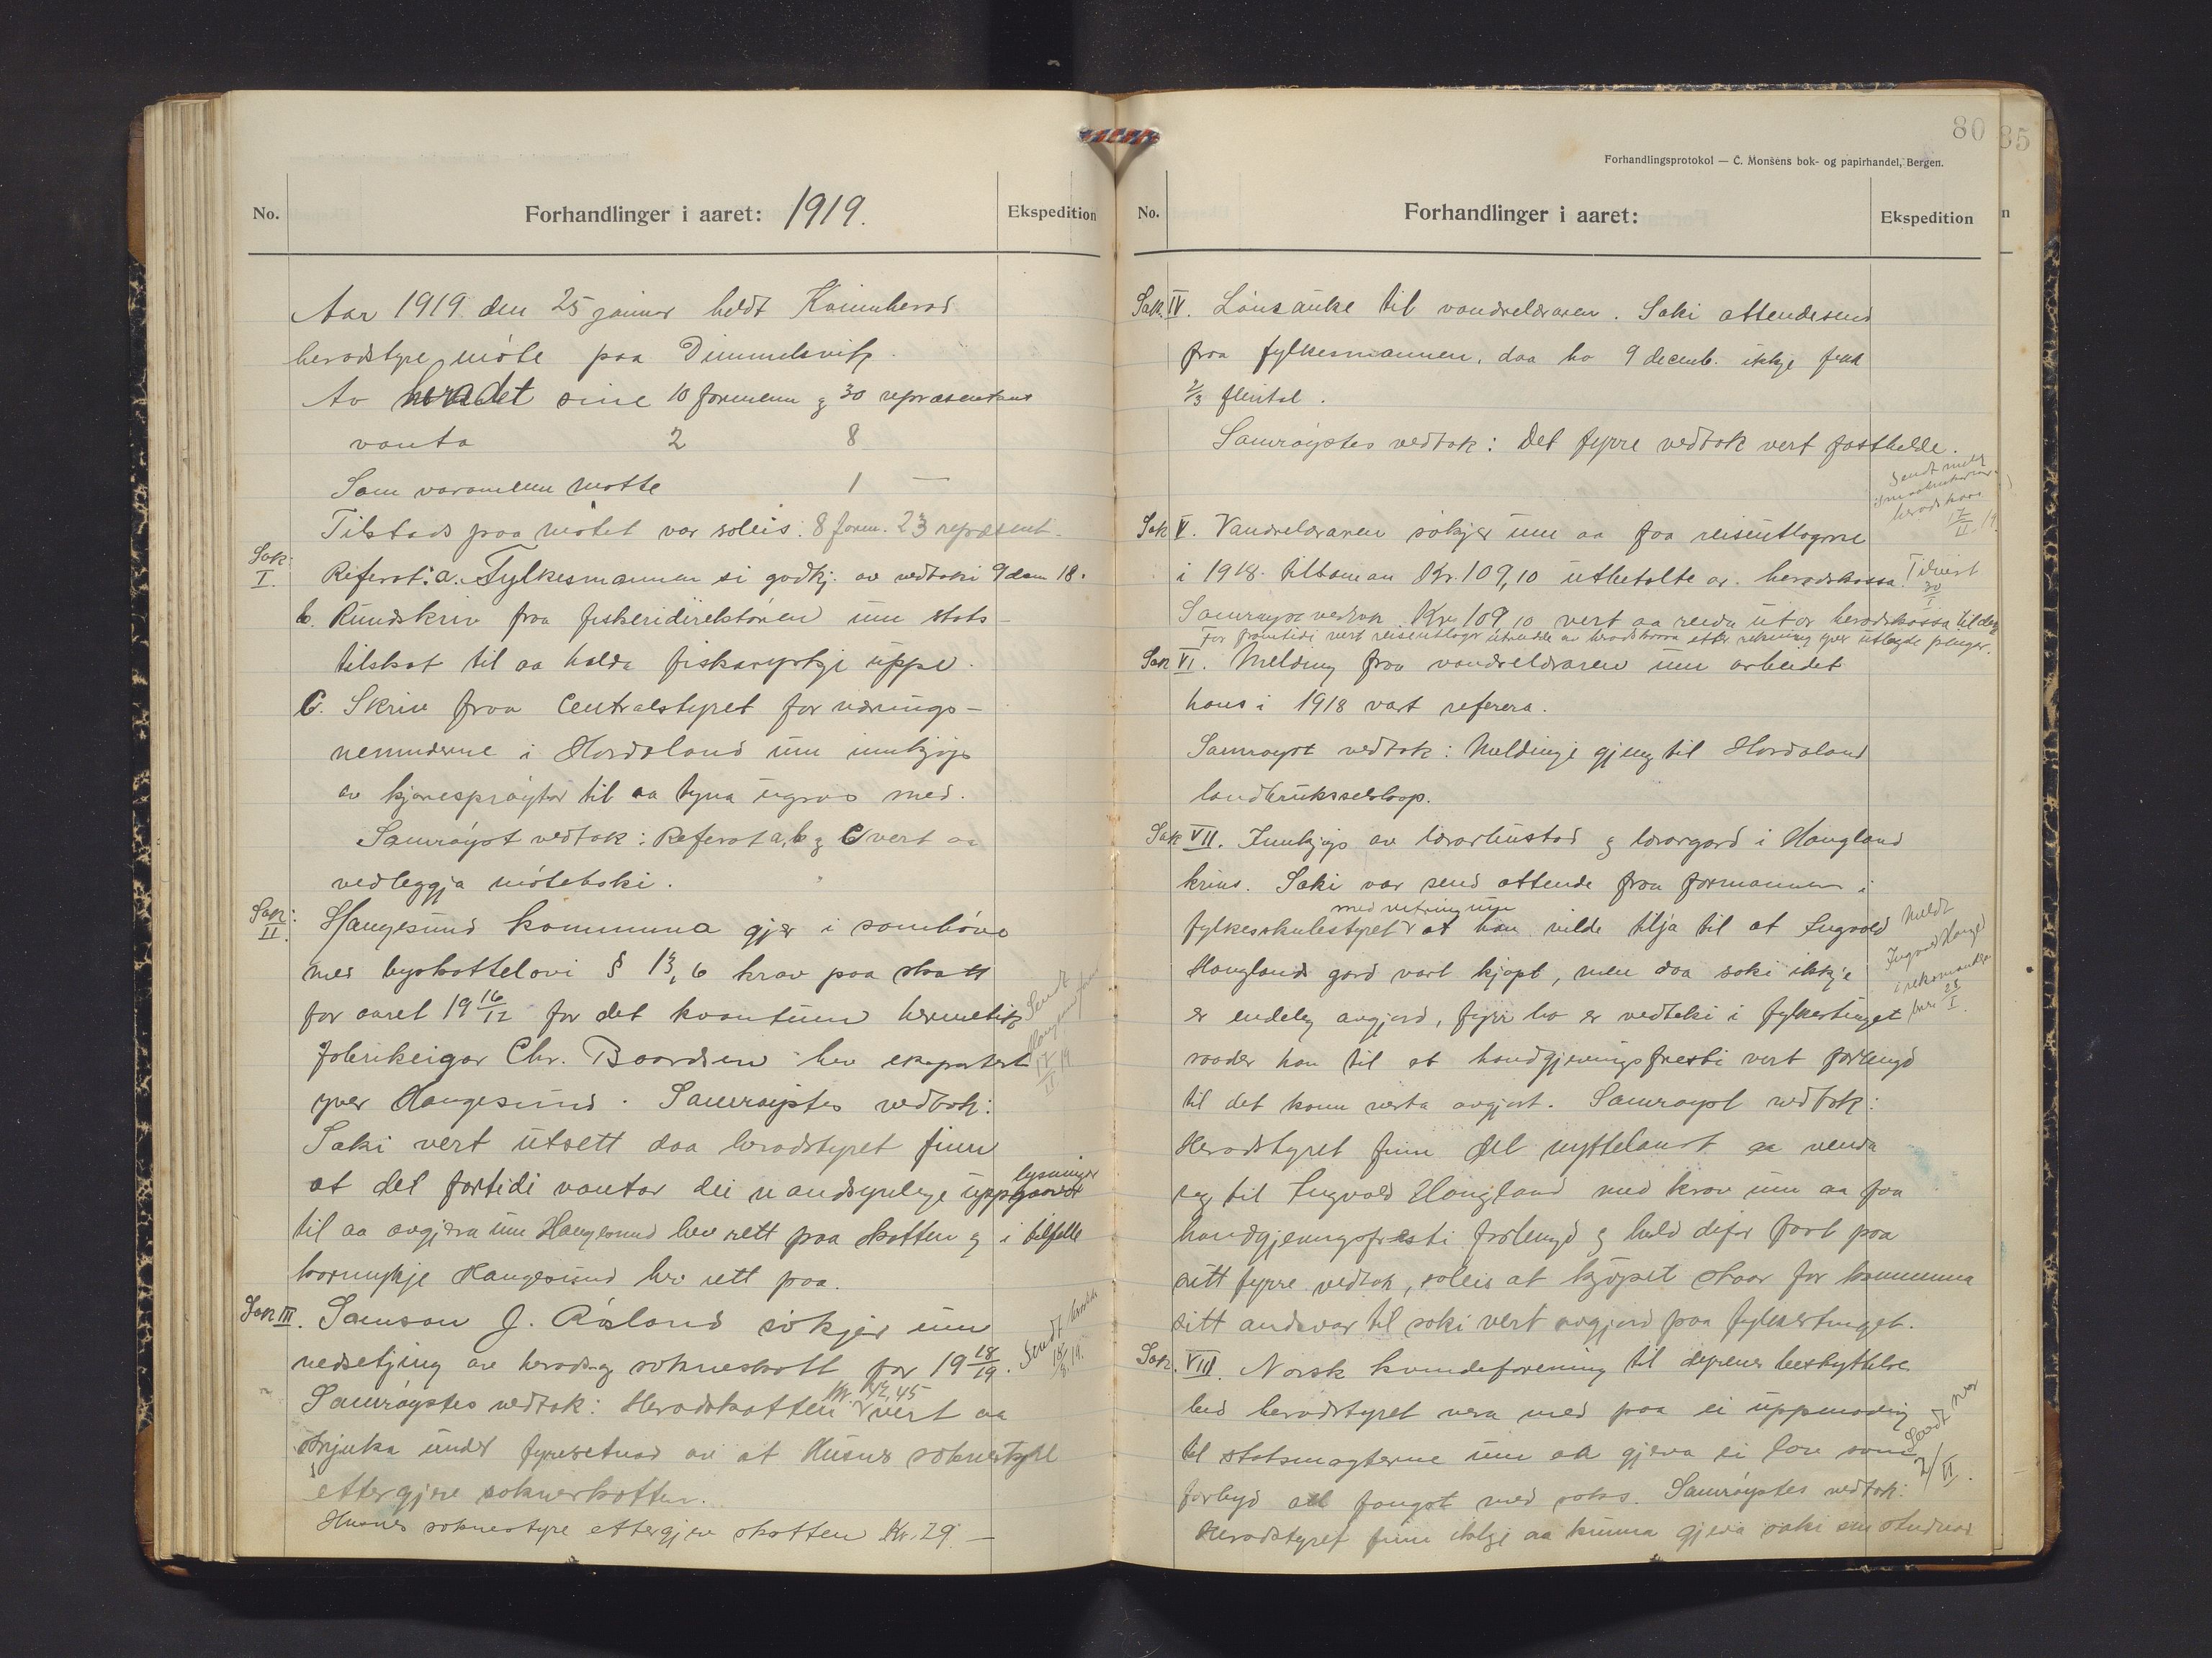 No.
Forhandlinger i aaret: 1919.
Ekspedition
Aar 1919 den 25 januar heldt Kvinnherad
heradstyre møte paa Dimmelsvik.
Av heradet sine 10 formenn og 30 repræsentant
vanta 2 8
Som varamenn møtte 1 —
Tilstads paa møtet var soleis: 8 form. 23 repræsent.
Sak I.
Referat: a. Fylkesmannen si godkj. av vedtaki 9 dsm 18.
b. Rundskriv fraa fiskeridirektøren um stats-
tilskot til aa halda fiskaryrkje uppe.
C. Skriv fraa Centralstyret for nærings-
nemnderne i Hordaland um innkjøp
av kjøresprøytor til aa tyna ugras med.
Samrøyst vedtok: Referat a, b og C vert aa
vedleggja møteboki.
Sak: II.
Haugesund kommuna gjer i samhøve
med byskattelovi § 13, 6 krav paa skatt
for aaret 19 16/17 for det kvantum hermetik
fabrikeigar Chr. Baardsen hev eksportert
yver Haugesund. Samrøystes vedtok:
Saki vert utsett daa heradstyret finn
at det fortidi vantar dei naudsynlege upplysningar
til aa avgjera um Haugesund hev rett paa skatten og i tilfelle
kormykje Haugesund hev rett paa.
Sendt Haugesund 17/II 19
Sak III.
Samson J. Røsland søkjer um
nedsetjing av herads og sokneskatt for 19 18/19.
Samrøystes vedtok: Heradskatten Kr. 42,45 vert aa
strjuka under fyresetnad av at Husnes soknestyre
ettergjeve sokneskatten.
Husnes soknestyre ettergjev skatten Kr. 29 —
Sendt 18/8 19.
80
85
Forhandlingsprotokol — C. Monsens bok- og papirhandel, Bergen.
No.
Forhandlinger i aaret:
Ekspedition
Sak. IV. Lønsauke til vandrelæraren. Saki attendesend
fraa fylkesmannen, daa ho 9 decemb. ikkje fekk
2/3 fleirtal.
Samrøystes vedtok: Det fyrre vedtak vert fasthelde.
Sak V. Vandrelæraren søkjer um aa faa reiseutlogorne
i 1918 tilsaman Kr. 109,10 utbetalte av heradskassa.
Samrøyst vedtok Kr. 109,10 vert aa reida utor heradskassa til dep
For framtidi vert reiseutlogor utreidde av heradskassa etter rekning yver utlagde pengar.
Tilvist 30/I
Sak VI. Melding fraa vandrelæraren um arbeidet
hans i 1918 vart referera.
Samrøyst vedtok: Meldingi gjeng til Hordaland
landbruksselskap.
Sak VII. Innkjøp av lærarbustad og lærargard i Haugland
krins. Saki var send attende fraa formannen i
fylkesskulestyret med vitring um at han vilde tilja til at Ingvald
Hauglands gard vart kjøpt, men daa saki ikkje
er endeleg avgjord, fyrr ho er vedteki i fylkestinget
raader han til at handgjevingsfresti vert forlengd
til det kann verta avgjort. Samrøyst vedtok:
Heradstyret finn det nyttelaust aa venda
seg til Ingvald Haugland med krav um aa faa
handgjevingsfresti forlengd og held difor fast paa
sitt fyrre vedtak, soleis at kjøpet staar for kommuna
sitt andsvar til saki vert avgjord paa fylkestinget.
Meldt Ingvald Haugl. i rekomandera brev 28/I
Sak. VIII. Norsk kvindeforening til dyrenes beskyttelse
bed heradstyret vera med paa ei uppmoding
til statsmagterne um aa gjeva ei lov som
forbyd all fangst med saks. Samrøystes vedtok:
Heradstyret finn ikkje aa kunna gjeva saki sin studnad
Sendt svar 2/VI.